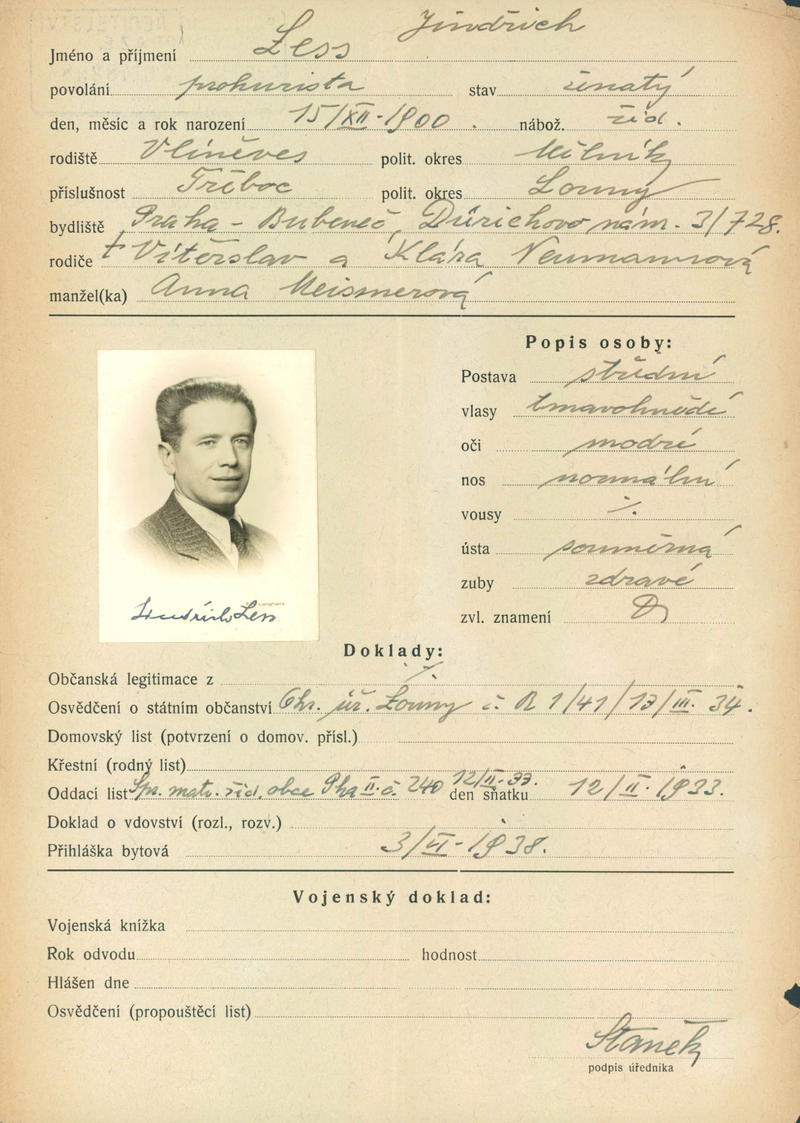 Jindřich
Jméno a příjmení Less
povolání prokurista stav ženatý
den, měsíc a rok narození 15/XII-1900. nábož. žid.
rodiště Vliněves polit. okres Mělník
příslušnost Třiboc polit. okres Louny
bydliště Praha - Bubeneč, Dürichovo nám. 3/728.
rodiče † Vítěslav a Klára Neumannová
manžel(ka) Anna Meisnerová
Popis osoby:
Postava střední
vlasy tmavohnědé
oči modré
nos normální
vousy ·/.
ústa souměrná
zuby zdravé
zvl. znamení
Jindřich Less
Langhans
Doklady:
Občanská legitimace z ·/.
Osvědčení o státním občanství Okr. úř. Louny č. R 1/41/13/III. 34.
Domovský list (potvrzení o domov. přísl.)
Křestní (rodný list)
12/II-33.
Oddací list Spr. matr. žid. obce Pha II. č. 240 den sňatku 12/II. 1933.
Doklad o vdovství (rozl., rozv.)
Přihláška bytová 3/VI-1938.
Vojenský doklad:
Vojenská knížka
Rok odvodu hodnost
Hlášen dne
Osvědčení (propouštěcí list)
Staněk
podpis úředníka